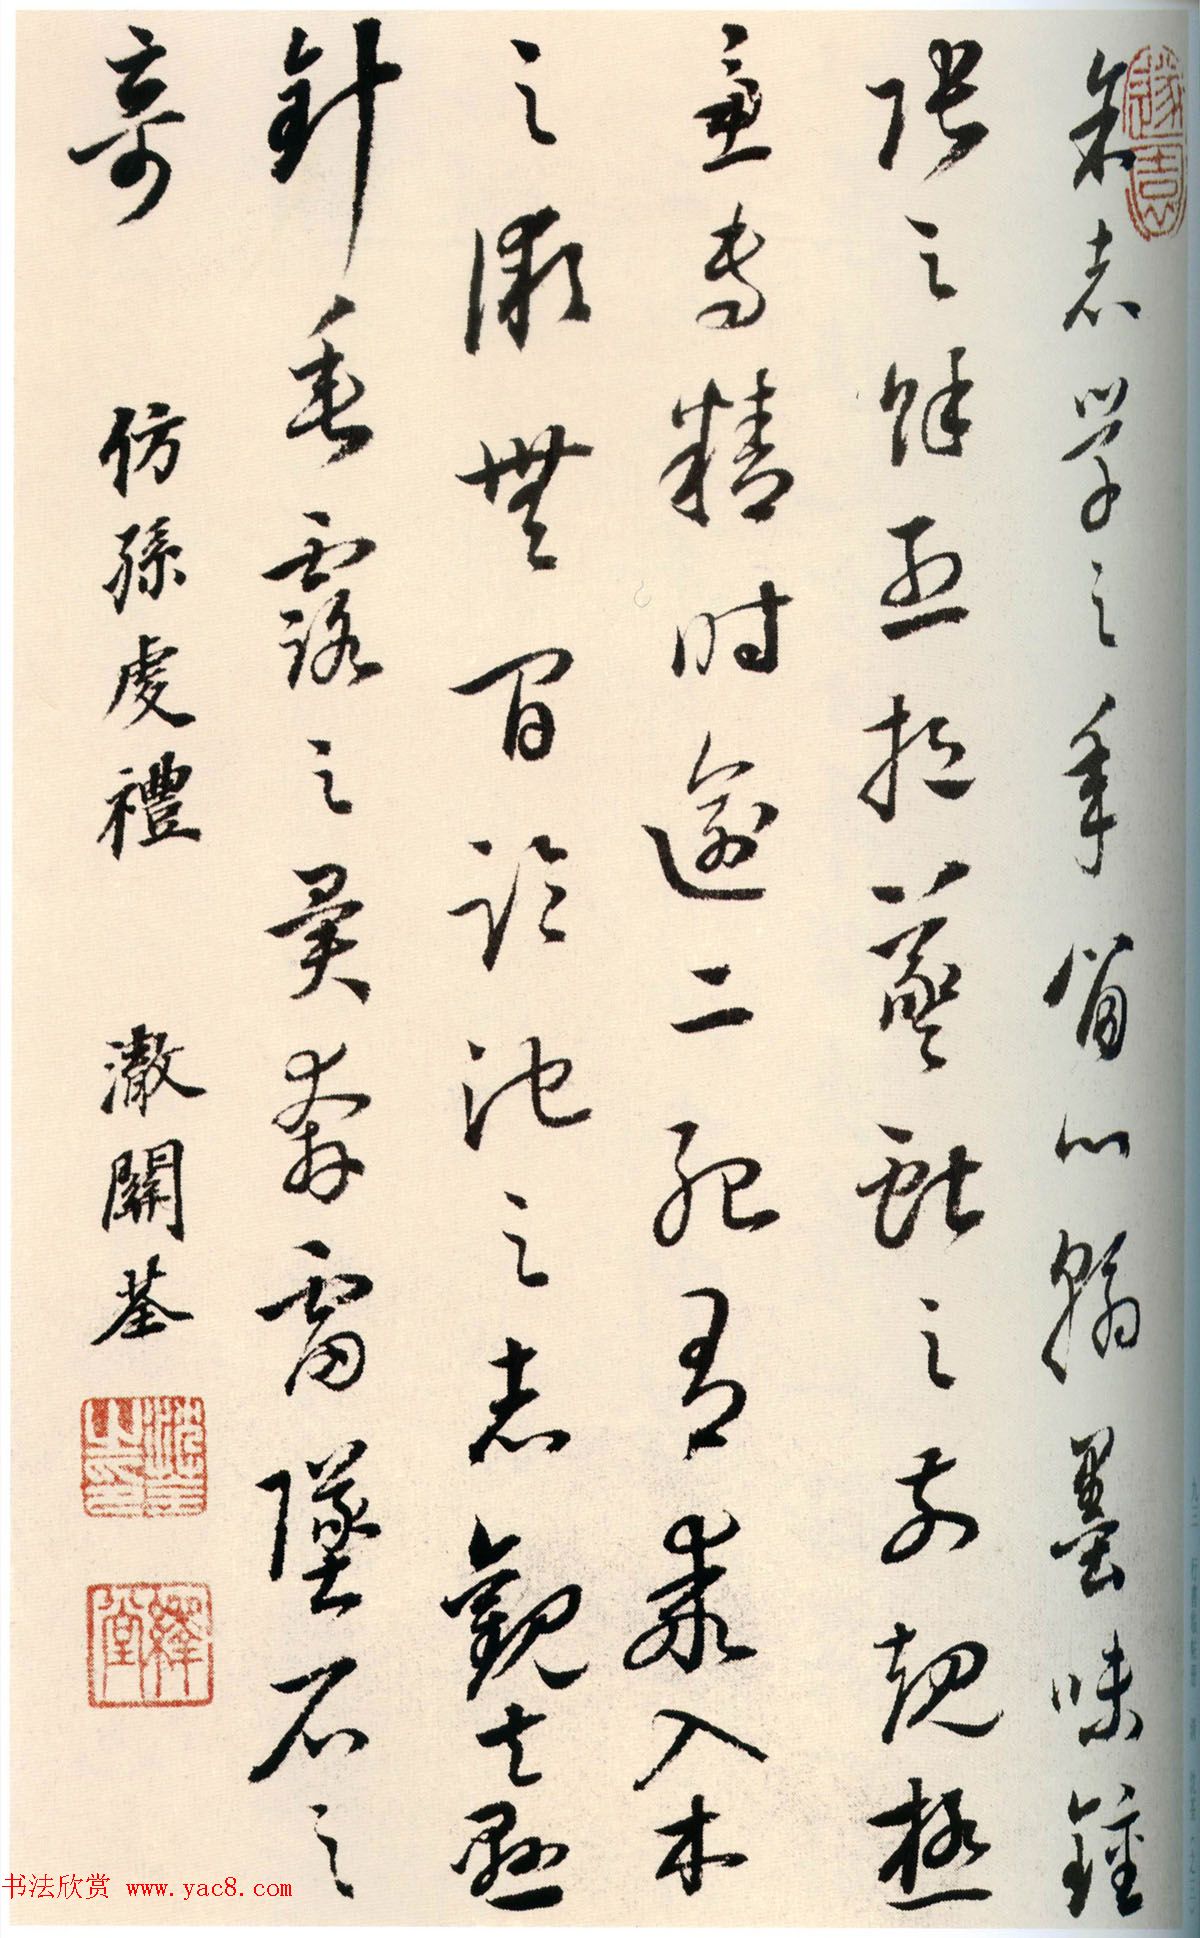 余志學之年留心翰墨味鍾
張之餘烈挹羲獻之前規極
慮專精時逾二紀有乖入木
之術無間臨池之志觀夫懸
針垂露之異奔雷墜石之
奇
仿孫虔禮
澂關荃
沈荃之印
繹堂
书法欣赏 www.yac8.com